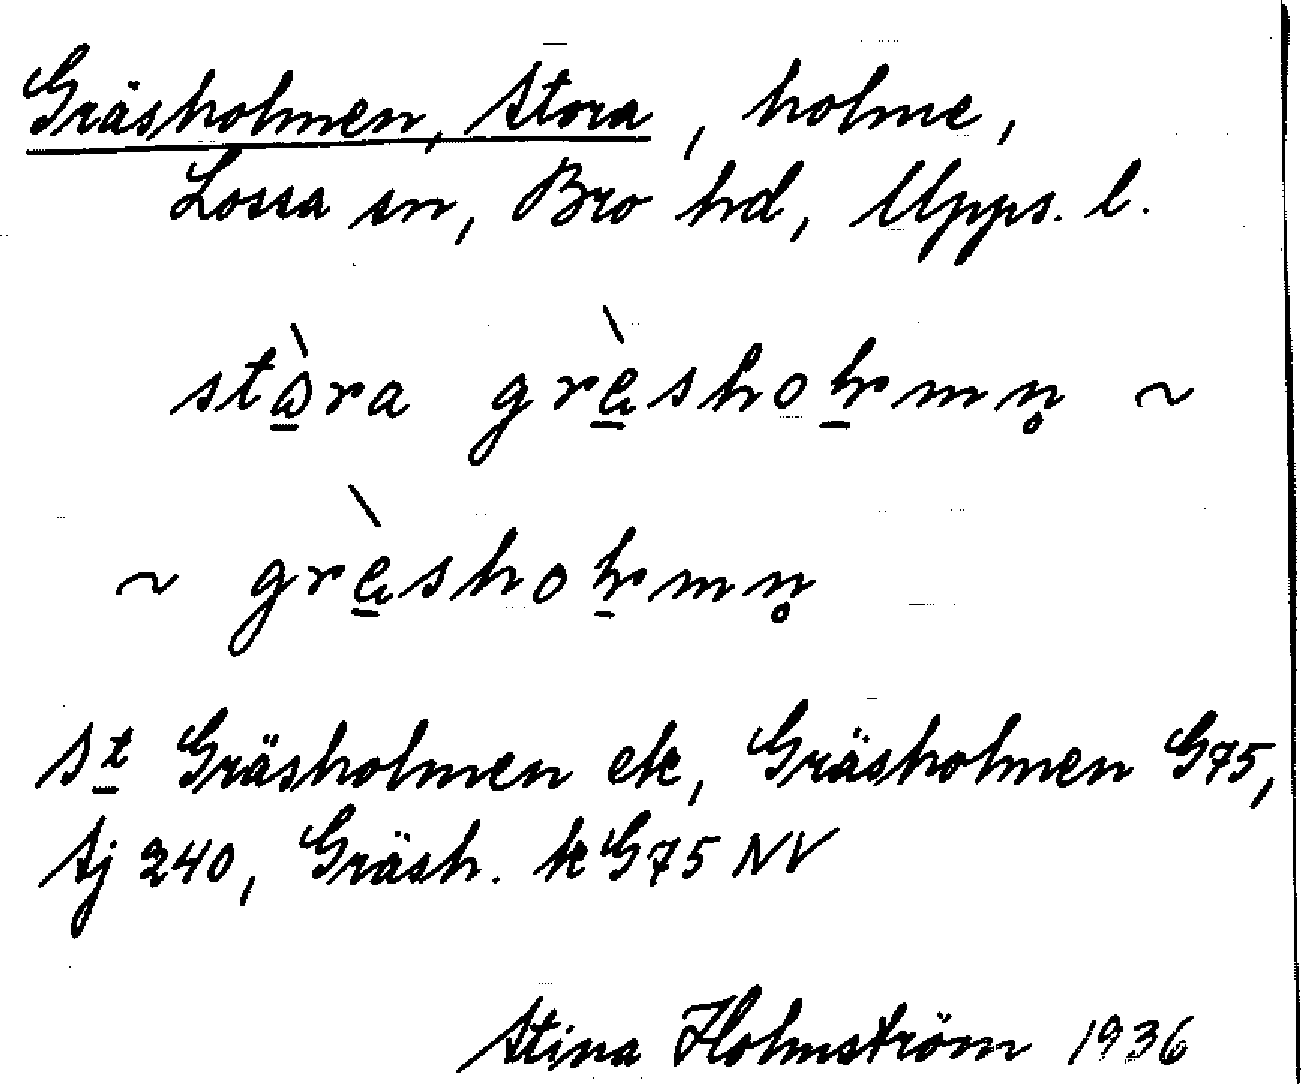 Gräsholmen, Stora, holme,
Lossa sn, Bro hd, Upps. l.
stòra grèsholmn̥ ~
~ grèsholmn̥
St Gräsholmen ek, Gräsholmen G75,
Sj 240, Gräsh. k G75 NV
Stina Holmström 1936